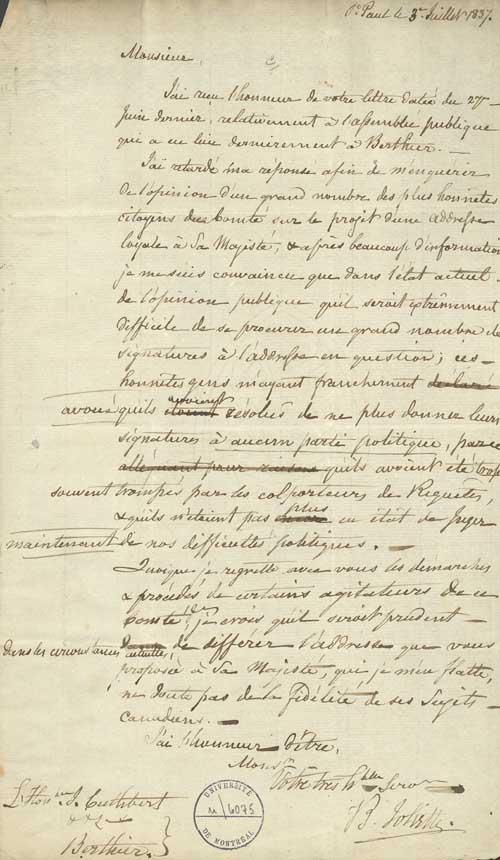 St. Paul le 3e. Juillet 1837.
Monsieur,
J'ai reçu l'honneur de votre lettre datée du 27
Juin dernier, relativement à l'assemblée publique
qui a eu lieu dernierement à Berthier. —
J'ai retardé ma réponse afin de m'enquérir
de l'opinion d'un grand nombre des plus honnêtes
citoyens du Comté sur le projet d'une addresse
loyale à Sa Majesté, & après beaucoup d'information
je me suis convaincu que dans l'état actuel
de l'opinion publique qu'il seroit extrêmement
difficile de se procurer un grand nombre de
signatures à l'addresse en question; ces
honnêtes gens m'ayant franchement déclaré
avoué qu'ils étoient avoient résolus de ne plus donner leurs
signatures à aucun parti politique, parce
alléguant pour raison qu'ils avoient été trop
souvent trompés par les colporteurs de Requêtes,
& qu'ils n'étaient pas plus en état de juger
maintenant de nos difficultés politiques. —
Quoique je regrette avec vous les démarches
& procédés de certains agitateurs de ce
Comté, je crois qu'il seroit prudent
dans les circonstances actuelles, de différer l'addresse que vous
proposée à Sa Majesté, qui je m'en flatte,
ne doute pas de la fidélité de ses Sujets
canadiens. —
J'ai l'honneur d'être,
Monsr.
Votre très hble Servr
B. Joliette
L'Honble J. Cuthbert
&c &c
Berthier.
UNIVERSITÉ
M 6075
DE MONTRÉAL